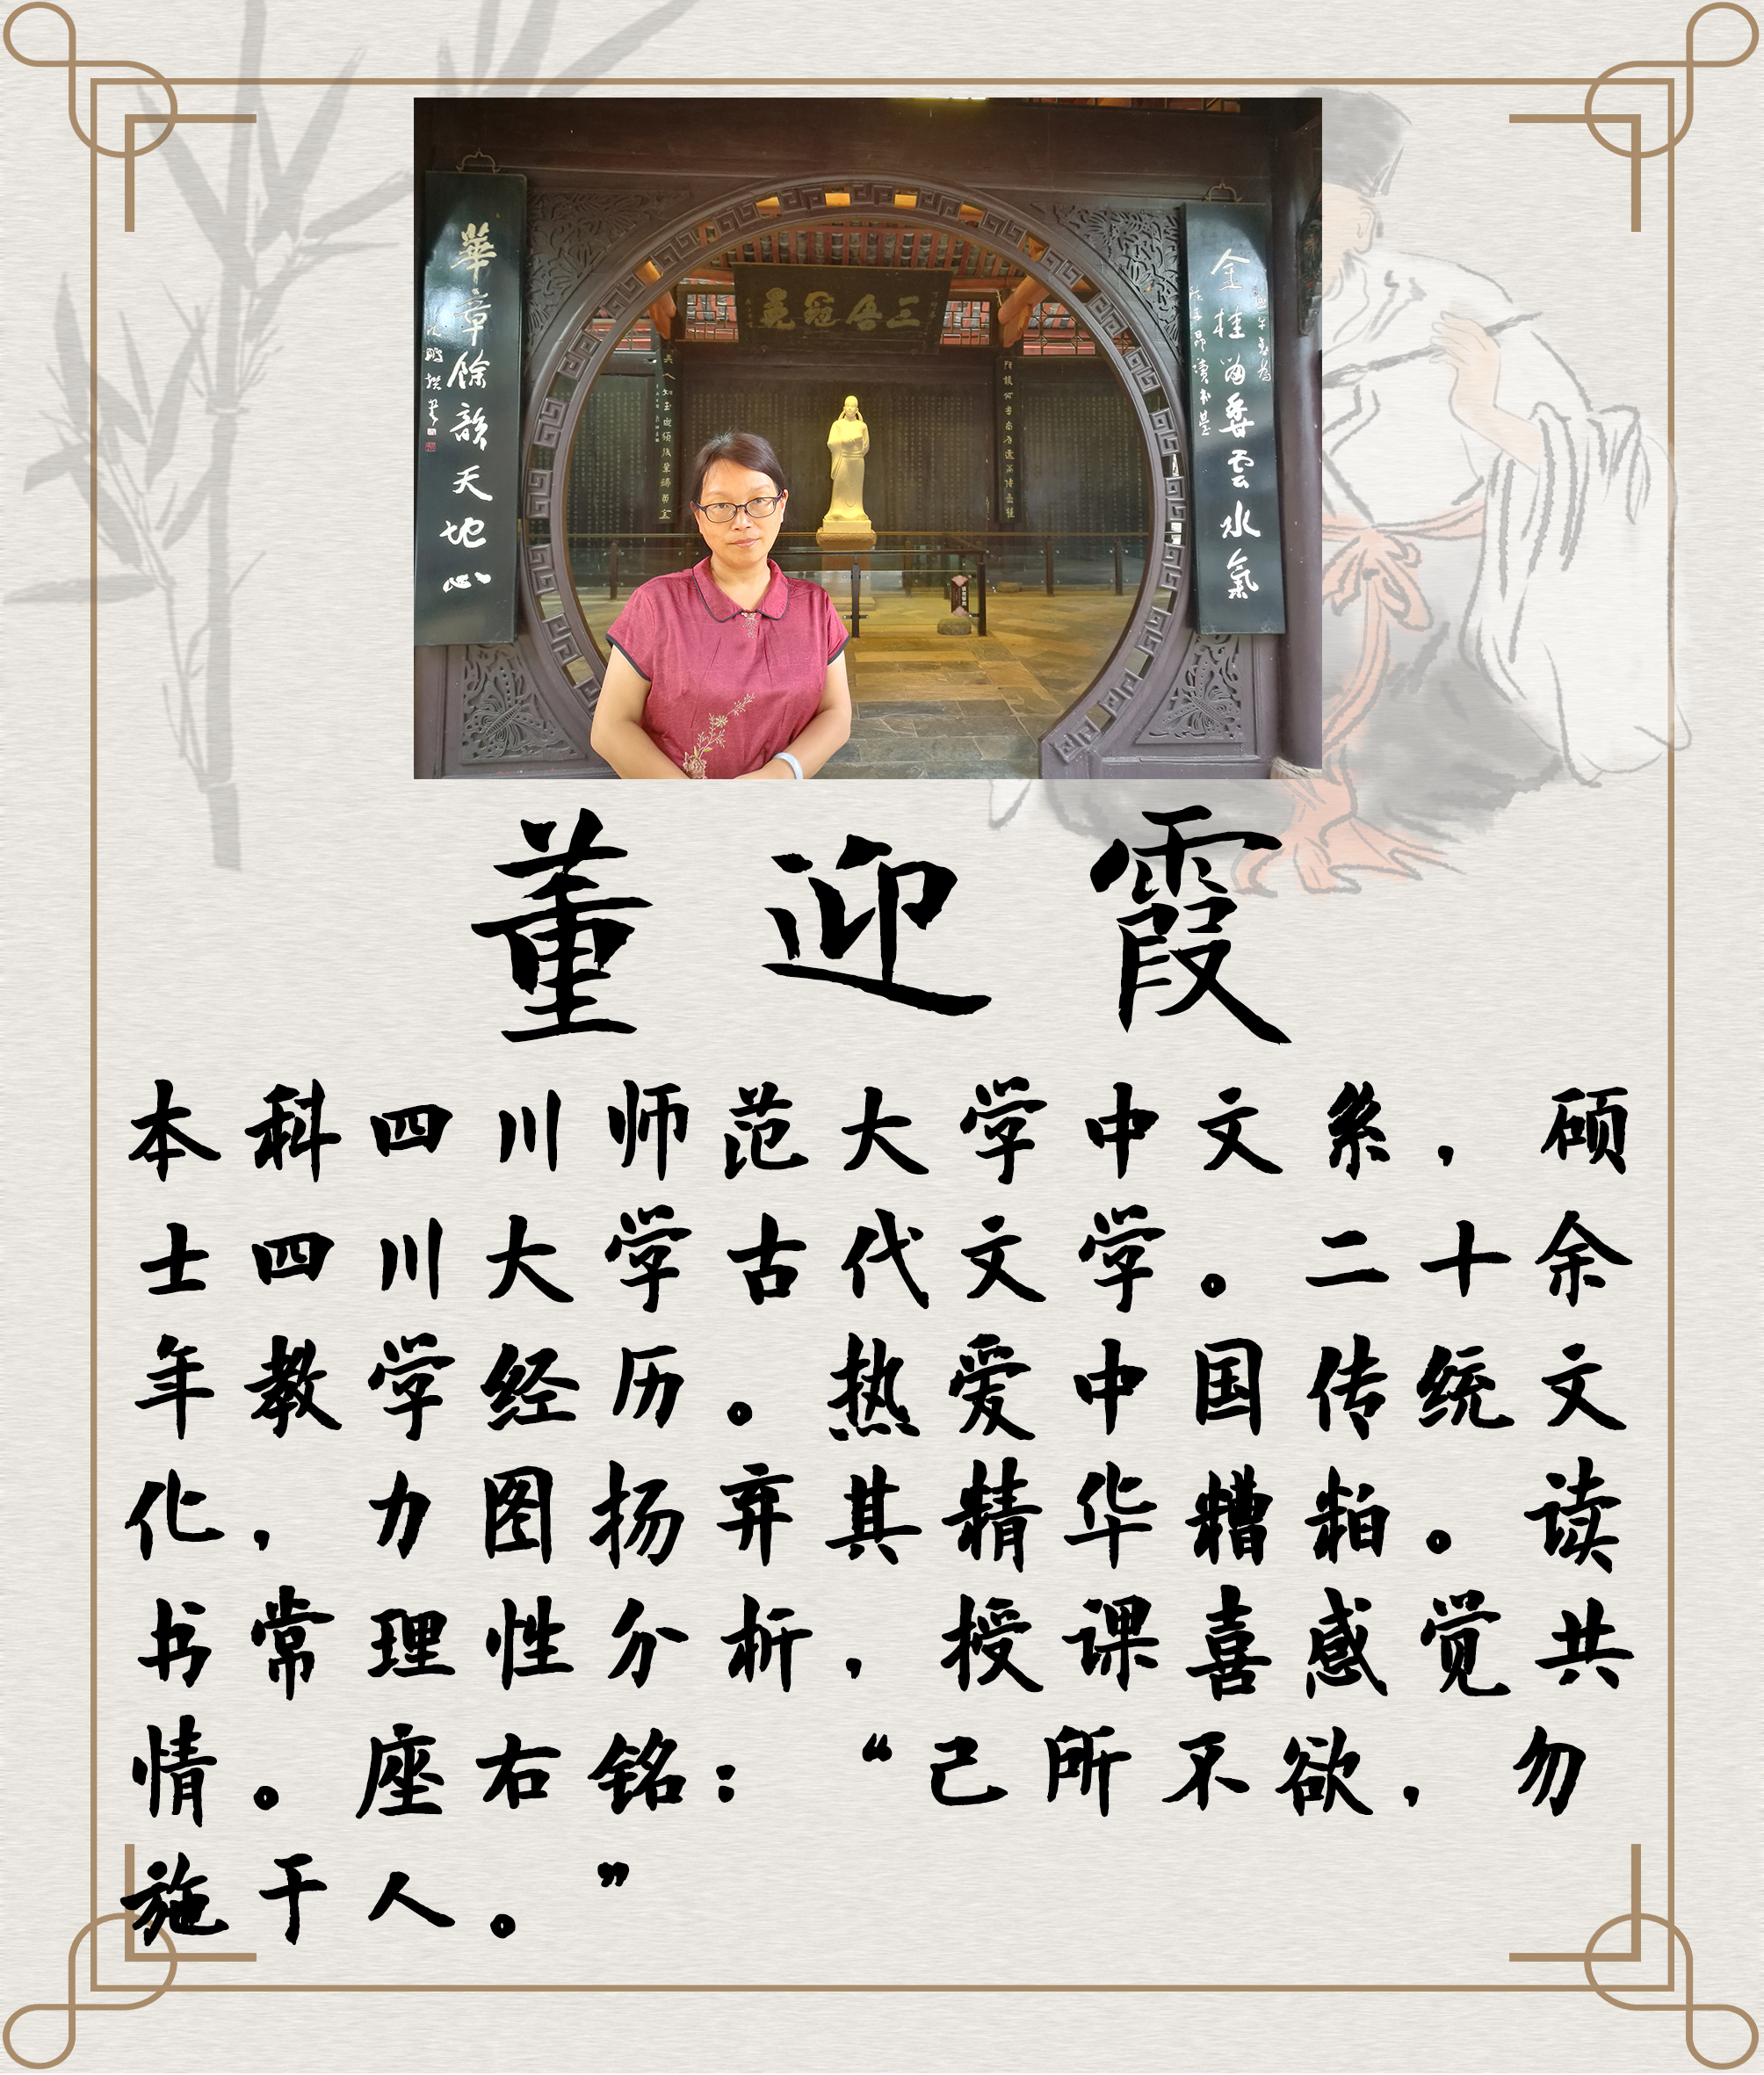 華章餘韻天地心
金桂
雲水氣
董迎霞
本科四川师范大学中文系，硕
士四川大学古代文学。二十余
年教学经历。热爱中国传统文
化，力图扬弃其精华糟粕。读
书常理性分析，授课喜感觉共
情。座右铭：“己所不欲，勿
施于人。”